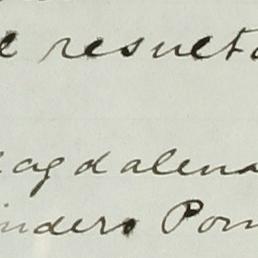 e resuelto
agdalena
inders Pom